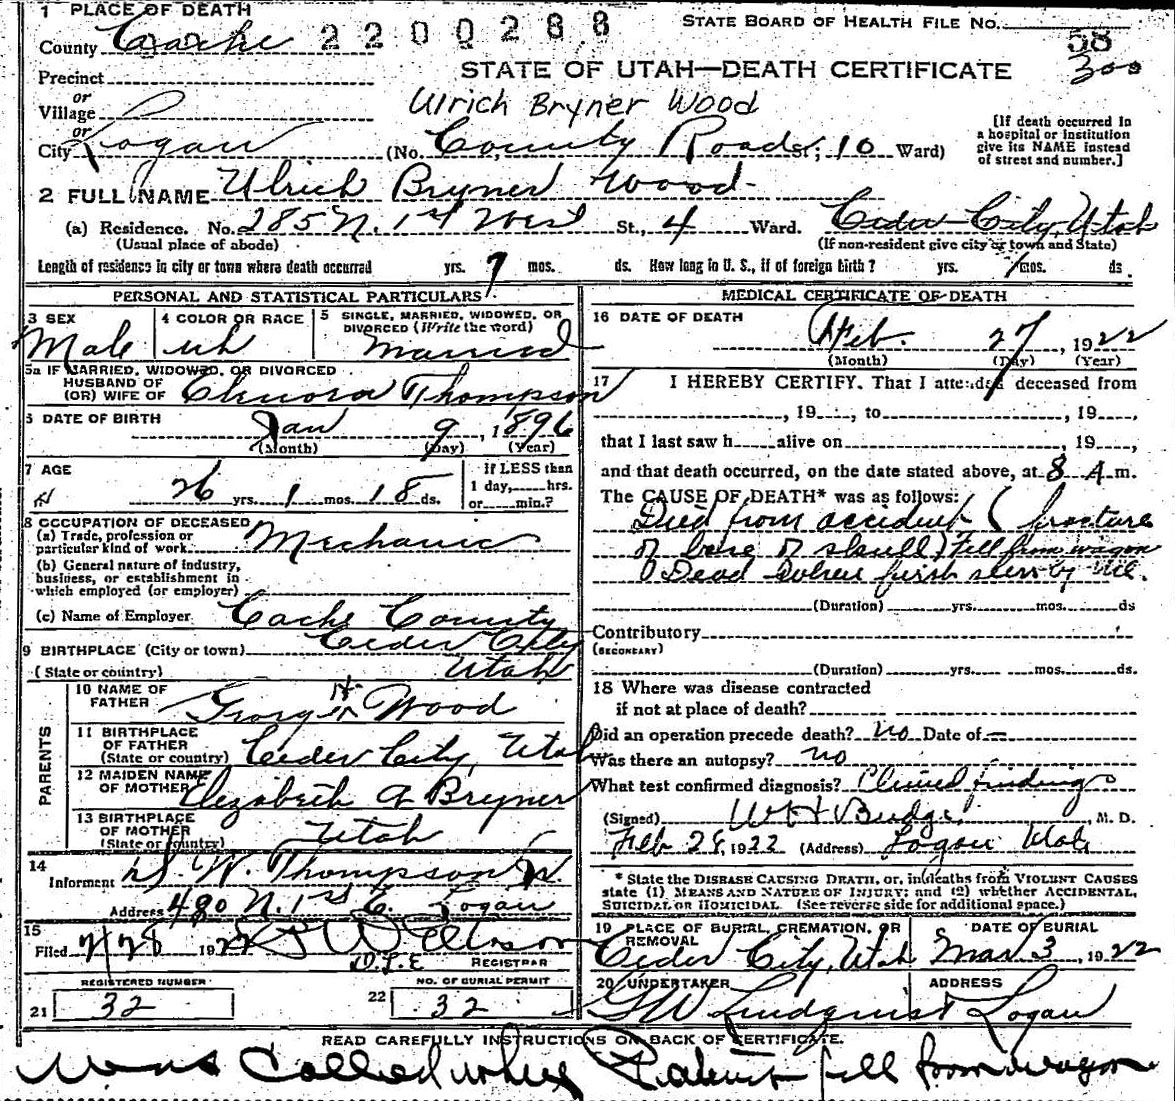 1 PLACE OF DEATH
STATE BOARD OF HEALTH FILE No.
County Cache 2200288
58
300
STATE OF UTAH—DEATH CERTIFICATE
Precinct
or
Village
Ulrich Bryner Wood
or
City Logan (No. County Road St; 10 Ward)
[If death occurred in a hospital or institution give its NAME instead of street and number.]
2 FULL NAME Ulrich Bryner Wood
(a) Residence. No. 285 N. 1st West St., 4 Ward. Ceder City, Utah
(Usual place of abode) (If non-resident give city or town and State)
Length of residence in city or town where death occurred yrs. 7 mos. ds. How long in U. S., if of foreign birth? yrs. mos. ds.
PERSONAL AND STATISTICAL PARTICULARS
3 SEX Male
4 COLOR OR RACE wh
5 SINGLE, MARRIED, WIDOWED, OR DIVORCED (Write the word) Married
5a IF MARRIED, WIDOWED, OR DIVORCED
HUSBAND OF
(OR) WIFE OF Elenora Thompson
6 DATE OF BIRTH Jan 9, 1896
(Month) (Day) (Year)
7 AGE 26 yrs. 1 mos. 18 ds.
If LESS than 1 day, hrs. or min.?
8 OCCUPATION OF DECEASED
(a) Trade, profession or particular kind of work Mechanic
(b) General nature of industry, business, or establishment in which employed (or employer)
(c) Name of Employer Cache County
9 BIRTHPLACE (City or town) Ceder City
(State or country) Utah
PARENTS
10 NAME OF FATHER George H Wood
11 BIRTHPLACE OF FATHER (State or country) Ceder City, Utah
12 MAIDEN NAME OF MOTHER Elezabeth A Bryner
13 BIRTHPLACE OF MOTHER (State or country) Utah
14
Informent W. Thompson
Address 480 N. 1st E. Logan
15
Filed 2/28 1922
REGISTRAR
REGISTERED NUMBER
21 32
NO. OF BURIAL PERMIT
22 32
MEDICAL CERTIFICATE OF DEATH
16 DATE OF DEATH Feb. 27, 1922
(Month) (Day) (Year)
17 I HEREBY CERTIFY. That I attended deceased from
, 19 , to , 19 ,
that I last saw h alive on , 19 ,
and that death occurred, on the date stated above, at 8 A m.
The CAUSE OF DEATH* was as follows:
Died from accident (fracture
of base of skull) Fell from wagon
Dead when first seen by me.
(Duration) yrs. mos. ds
Contributory
(SECONDARY)
(Duration) yrs. mos. ds.
18 Where was disease contracted
if not at place of death?
Did an operation precede death? No Date of —
Was there an autopsy? no
What test confirmed diagnosis? Clinical findings
(Signed) W H Budge, M. D.
Feb 28, 1922 (Address) Logan Utah
* State the DISEASE CAUSING DEATH, or, in deaths from VIOLENT CAUSES
state (1) MEANS AND NATURE OF INJURY; and (2) whether ACCIDENTAL,
SUICIDAL OR HOMICIDAL. (See reverse side for additional space.)
19 PLACE OF BURIAL, CREMATION, OR REMOVAL Ceder City, Utah
DATE OF BURIAL Mar 3, 1922
20 UNDERTAKER G W Lindquist
ADDRESS Logan
READ CAREFULLY INSTRUCTIONS ON BACK OF CERTIFICATE.
Was Called when Patient fell from wagon